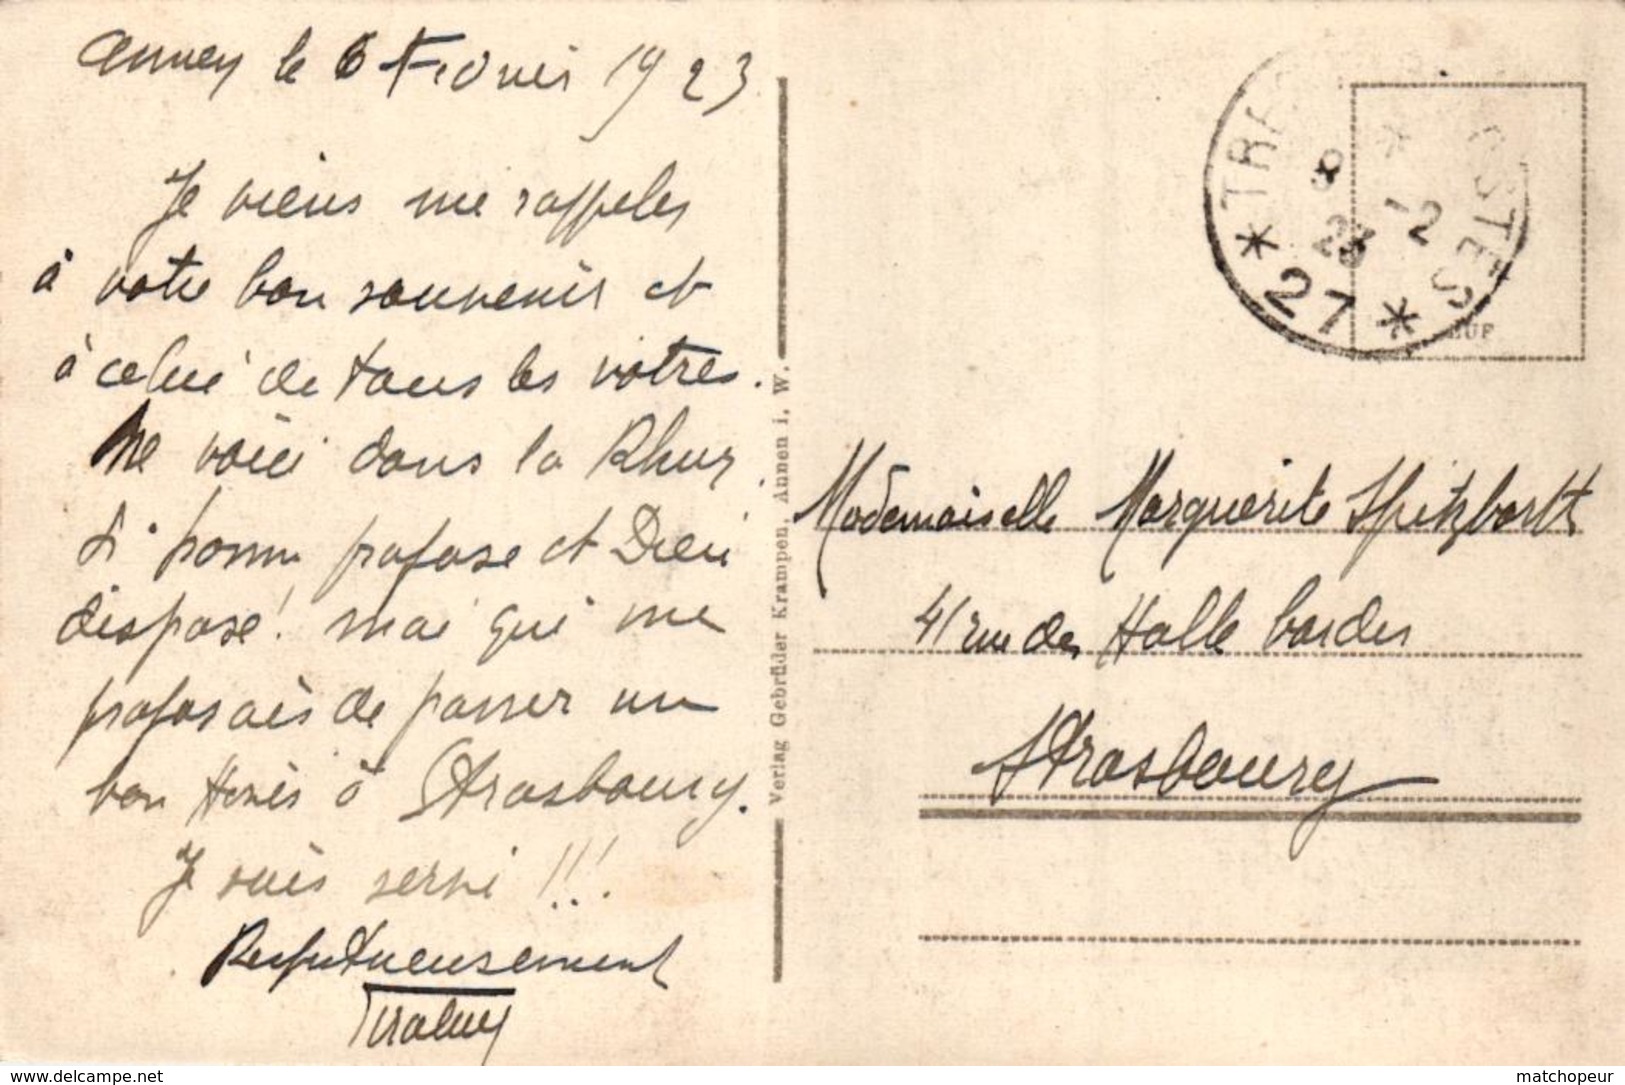 Annen le 6 Février 1923
Je viens me rappeler
à votre bon souvenir et
à celui de tous les votres.
Me voici dans la Rhur.
L'homme propose et Dieu
dispose! moi qui me
proposais de passer un
bon hiver à Strasbourg.
Je suis servi!!!
Respectueusement
Verlag Gebrüder Krampen, Annen i. W.
8 * -2
23
* 27 *
POSTES
Mademoiselle Marguerite Spitzbarth
41 rue des Hallebardes
Strasbourg
www.delcampe.net
matchopeur